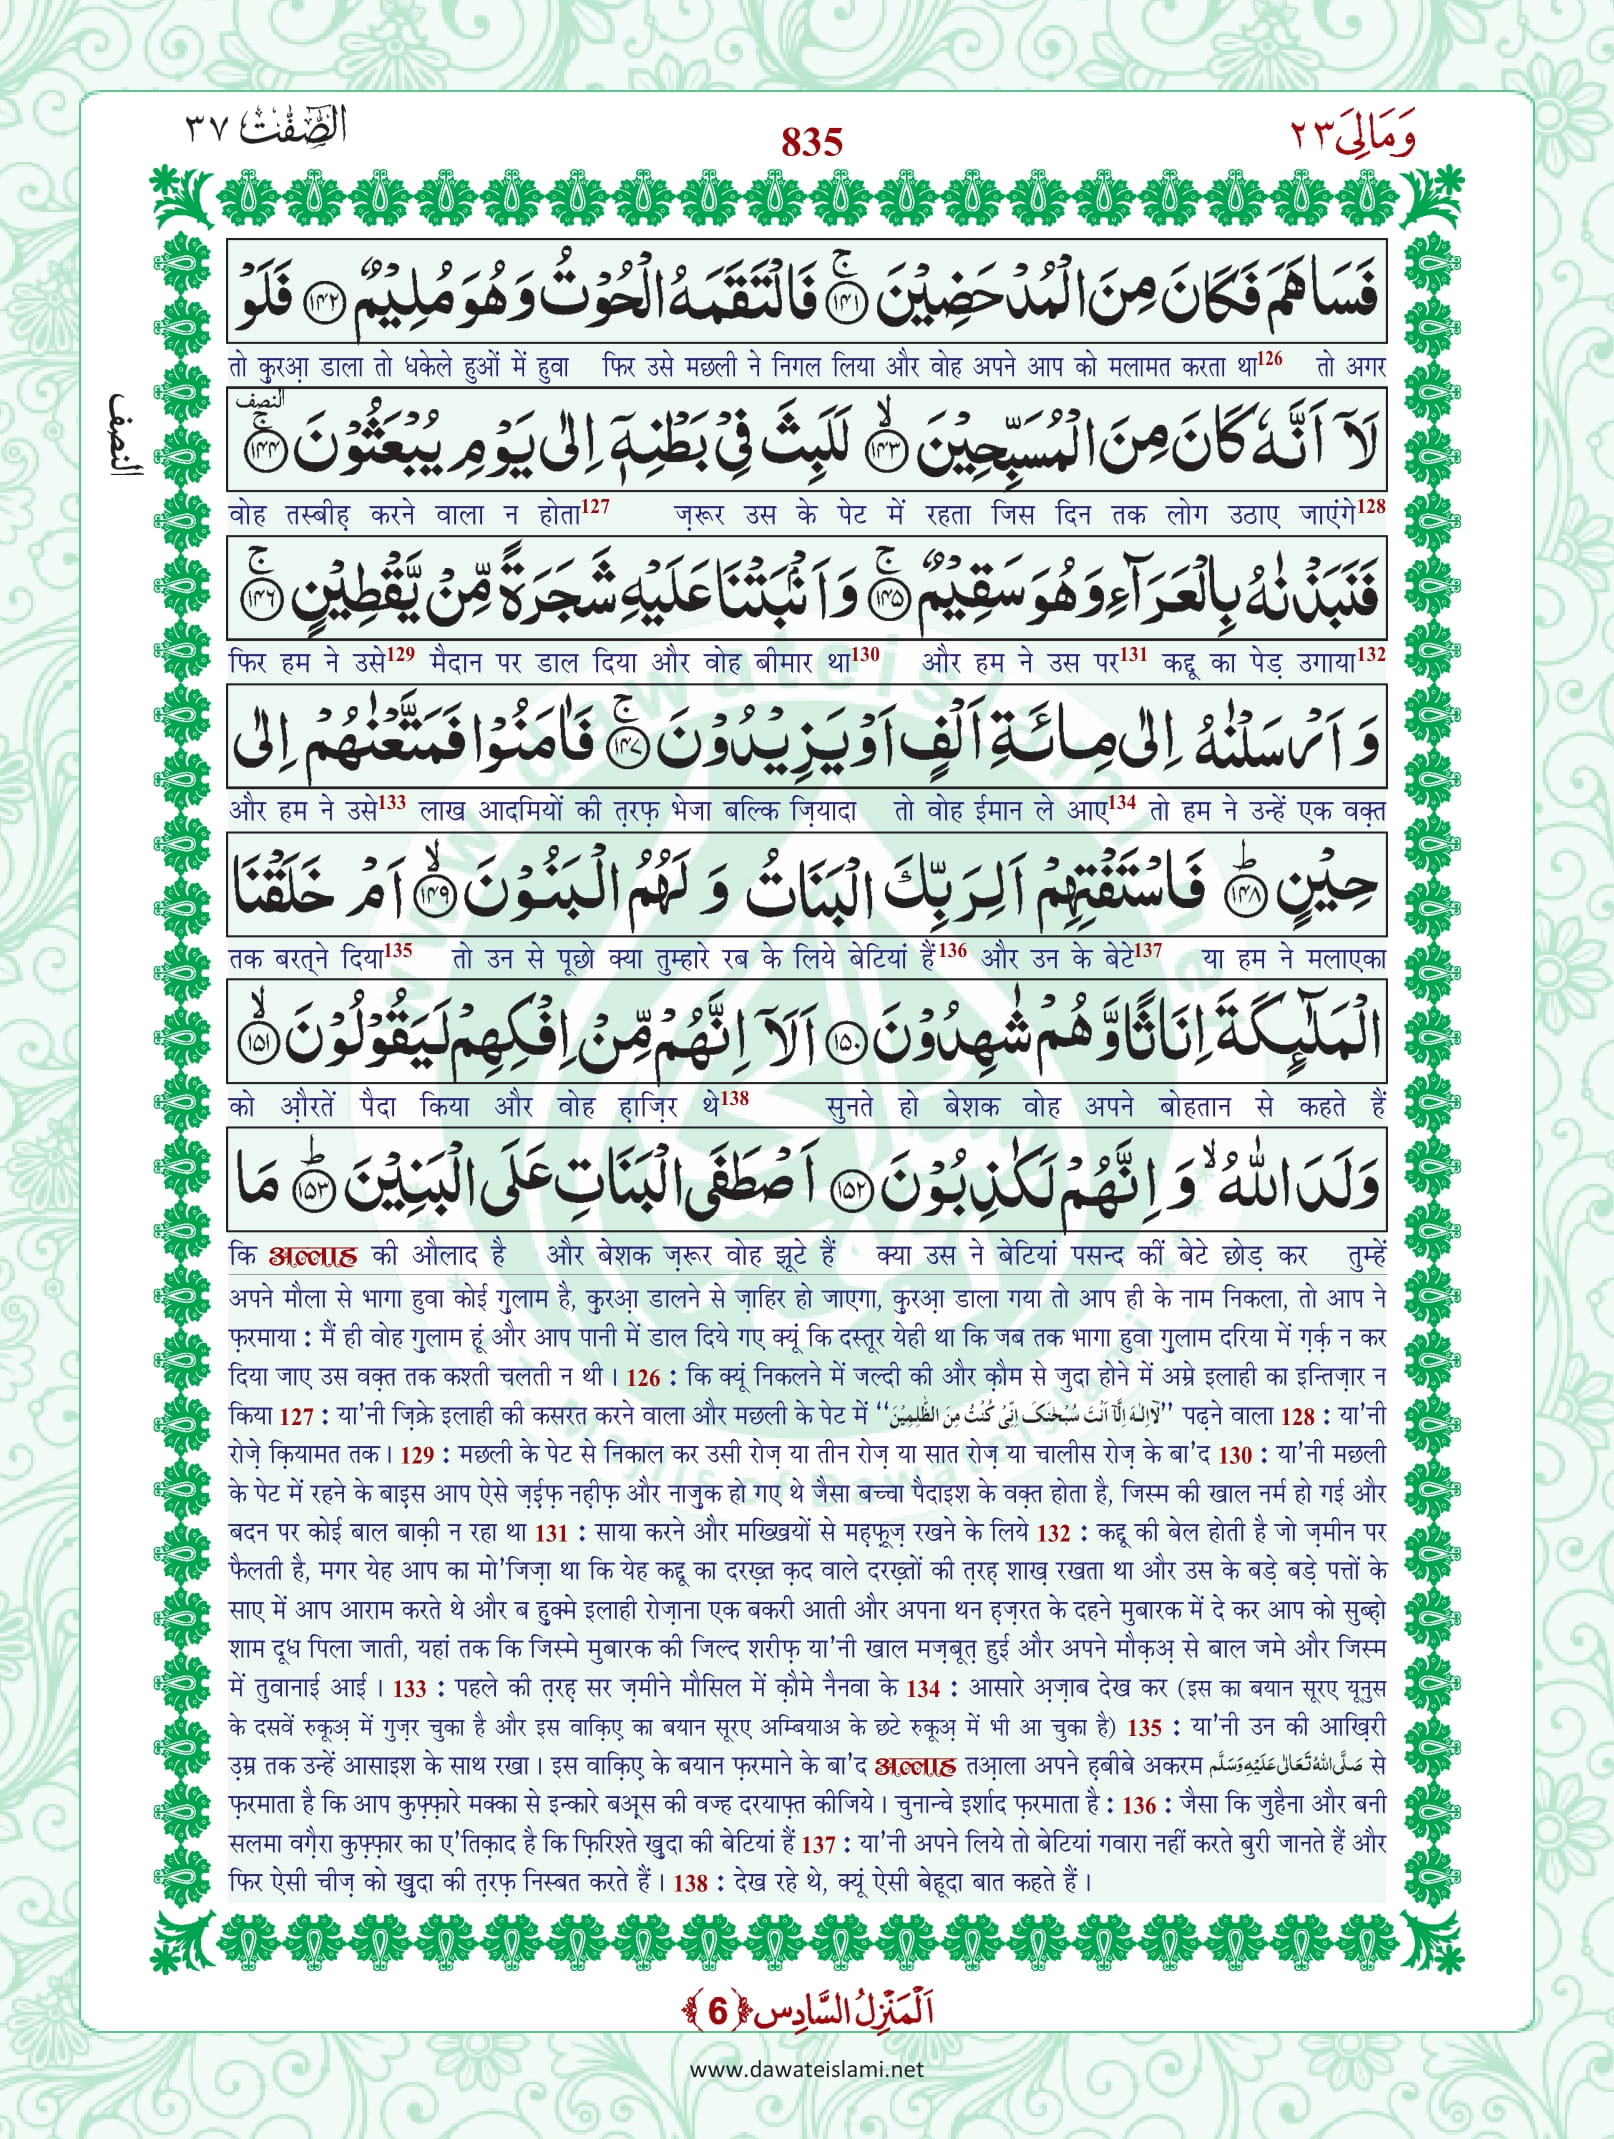 وَمَالِیَ ٢٣
835
الصّٰٓفّٰت ٣٧
فَسَاهَمَ فَكَانَ مِنَ الْمُدْحَضِیْنَ ۚ﴿۱۴۱﴾ فَالْتَقَمَهُ الْحُوْتُ وَ هُوَ مُلِیْمٌ ﴿۱۴۲﴾ فَلَوْ
तो क़ुरआ़ डाला तो धकेले हुओं में हुवा फिर उसे मछली ने निगल लिया और वोह अपने आप को मलामत करता था126 तो अगर
النصف
لَاۤ اَنَّهٗ كَانَ مِنَ الْمُسَبِّحِیْنَ ۙ﴿۱۴۳﴾ لَلَبِثَ فِیْ بَطْنِهٖۤ اِلٰى یَوْمِ یُبْعَثُوْنَ ۚ﴿۱۴۴﴾ النصف
वोह तस्बीह़ करने वाला न होता127 ज़रूर उस के पेट में रहता जिस दिन तक लोग उठाए जाएंगे128
فَنَبَذْنٰهُ بِالْعَرَآءِ وَ هُوَ سَقِیْمٌ ۚ﴿۱۴۵﴾ وَ اَنْۢبَتْنَا عَلَیْهِ شَجَرَةً مِّنْ یَّقْطِیْنٍ ۚ﴿۱۴۶﴾
फिर हम ने उसे129 मैदान पर डाल दिया और वोह बीमार था130 और हम ने उस पर131 कद्दू का पेड़ उगाया132
وَ اَرْسَلْنٰهُ اِلٰى مِائَةِ اَلْفٍ اَوْ یَزِیْدُوْنَ ۚ﴿۱۴۷﴾ فَاٰمَنُوْا فَمَتَّعْنٰهُمْ اِلٰى
और हम ने उसे133 लाख आदमियों की त़रफ़ भेजा बल्कि ज़ियादा तो वोह ईमान ले आए134 तो हम ने उन्हें एक वक़्त
حِیْنٍ ؕ﴿۱۴۸﴾ فَاسْتَفْتِهِمْ اَلِرَبِّكَ الْبَنَاتُ وَ لَهُمُ الْبَنُوْنَ ۙ﴿۱۴۹﴾ اَمْ خَلَقْنَا
तक बरत्ने दिया135 तो उन से पूछो क्या तुम्हारे रब के लिये बेटियां हैं136 और उन के बेटे137 या हम ने मलाएका
الْمَلٰٓىِٕكَةَ اِنَاثًا وَّ هُمْ شٰهِدُوْنَ ﴿۱۵۰﴾ اَلَاۤ اِنَّهُمْ مِّنْ اِفْكِهِمْ لَیَقُوْلُوْنَ ۙ﴿۱۵۱﴾
को औ़रतें पैदा किया और वोह ह़ाज़िर थे138 सुनते हो बेशक वोह अपने बोहतान से कहते हैं
وَلَدَ اللّٰهُ ۙ وَ اِنَّهُمْ لَكٰذِبُوْنَ ﴿۱۵۲﴾ اَصْطَفَى الْبَنَاتِ عَلَى الْبَنِیْنَ ؕ﴿۱۵۳﴾ مَا
कि अल्लाह की औलाद है और बेशक ज़रूर वोह झूटे हैं क्या उस ने बेटियां पसन्द कीं बेटे छोड़ कर तुम्हें
अपने मौला से भागा हुवा कोई ग़ुलाम है, क़ुरआ़ डालने से ज़ाहिर हो जाएगा, क़ुरआ़ डाला गया तो आप ही के नाम निकला, तो आप ने
फ़रमाया : मैं ही वोह ग़ुलाम हूं और आप पानी में डाल दिये गए क्यूं कि दस्तूर येही था कि जब तक भागा हुवा ग़ुलाम दरिया में ग़र्क़ न कर
दिया जाए उस वक़्त तक कश्ती चलती न थी । 126 : कि क्यूं निकलने में जल्दी की और क़ौम से जुदा होने में अम्रे इलाही का इन्तिज़ार न
किया 127 : या'नी ज़िक्रे इलाही की कसरत करने वाला और मछली के पेट में "لَاۤ اِلٰهَ اِلَّاۤ اَنْتَ سُبْحٰنَكَ اِنِّیْ كُنْتُ مِنَ الظّٰلِمِیْنَ" पढ़ने वाला 128 : या'नी
रोज़े क़ियामत तक । 129 : मछली के पेट से निकाल कर उसी रोज़ या तीन रोज़ या सात रोज़ या चालीस रोज़ के बा'द 130 : या'नी मछली
के पेट में रहने के बाइस आप ऐसे ज़ई़फ़ नह़ीफ़ और नाज़ुक हो गए थे जैसा बच्चा पैदाइश के वक़्त होता है, जिस्म की खाल नर्म हो गई और
बदन पर कोई बाल बाक़ी न रहा था 131 : साया करने और मख्खियों से मह़फ़ूज़ रखने के लिये 132 : कद्दू की बेल होती है जो ज़मीन पर
फैलती है, मगर येह आप का मो'जिज़ा था कि येह कद्दू का दरख़्त क़द वाले दरख़्तों की त़रह़ शाख़ रखता था और उस के बड़े बड़े पत्तों के
साए में आप आराम करते थे और ब ह़ुक्मे इलाही रोज़ाना एक बकरी आती और अपना थन ह़ज़रत के दहने मुबारक में दे कर आप को सुब्ह़ो
शाम दूध पिला जाती, यहां तक कि जिस्मे मुबारक की जिल्द शरीफ़ या'नी खाल मज़बूत़ हुई और अपने मौक़अ़ से बाल जमे और जिस्म
में तुवानाई आई । 133 : पहले की त़रह़ सर ज़मीने मौसिल में क़ौमे नैनवा के 134 : आसारे अ़ज़ाब देख कर (इस का बयान सूरए यूनुस
के दसवें रुकूअ़ में गुज़र चुका है और इस वाक़िए का बयान सूरए अम्बियाअ के छटे रुकूअ़ में भी आ चुका है) 135 : या'नी उन की आख़िरी
उ़म्र तक उन्हें आसाइश के साथ रखा । इस वाक़िए के बयान फ़रमाने के बा'द अल्लाह तआ़ला अपने ह़बीबे अकरम صَلَّى اللّٰهُ تَعَالٰى عَلَیْهِ وَسَلَّم से
फ़रमाता है कि आप कुफ़्फ़ारे मक्का से इन्कारे बअ़्स की वज्ह दरयाफ़्त कीजिये । चुनान्चे इर्शाद फ़रमाता है : 136 : जैसा कि जुहैना और बनी
सलमा वग़ैरा कुफ़्फ़ार का ए'तिक़ाद है कि फ़िरिश्ते ख़ुदा की बेटियां हैं 137 : या'नी अपने लिये तो बेटियां गवारा नहीं करते बुरी जानते हैं और
फिर ऐसी चीज़ को ख़ुदा की त़रफ़ निस्बत करते हैं । 138 : देख रहे थे, क्यूं ऐसी बेहूदा बात कहते हैं ।
اَلْمَنْزِلُ السَّادِس ﴿6﴾
www.dawateislami.net